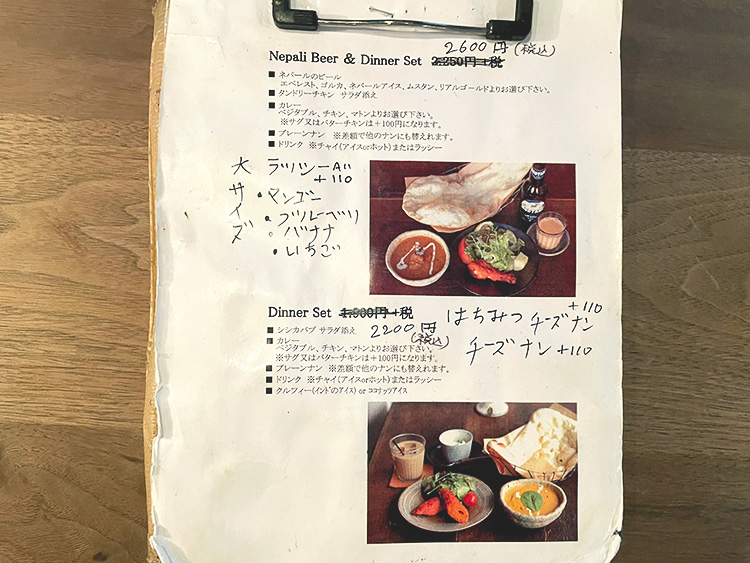 2600円(税込)
Nepali Beer & Dinner Set 2.250円+税
■ ネパールのビール
エベレスト、ゴルカ、ネパールアイス、ムスタン、リアルゴールドよりお選び下さい。
■ タンドリーチキン サラダ添え
■ カレー
ベジタブル、チキン、マトンよりお選び下さい。
※サグ又はバターチキンは+100円になります。
■ プレーンナン ※差額で他のナンにも替えれます。
■ ドリンク ※チャイ(アイスorホット)またはラッシー
大サイズ
ラッシー
+110
・マンゴー
・ブルーベリ
・バナナ
・いちご
Dinner Set 1.900円+税
2200円
(税込)
■ シシカバブ サラダ添え
■ カレー
ベジタブル、チキン、マトンよりお選び下さい。
※サグ又はバターチキンは+100円になります。
■ プレーンナン ※差額で他のナンにも替えれます。
■ ドリンク ※チャイ(アイスorホット)またはラッシー
■ クルフィー(インドのアイス) or ココナッツアイス
はちみつ チーズナン +110
チーズナン +110